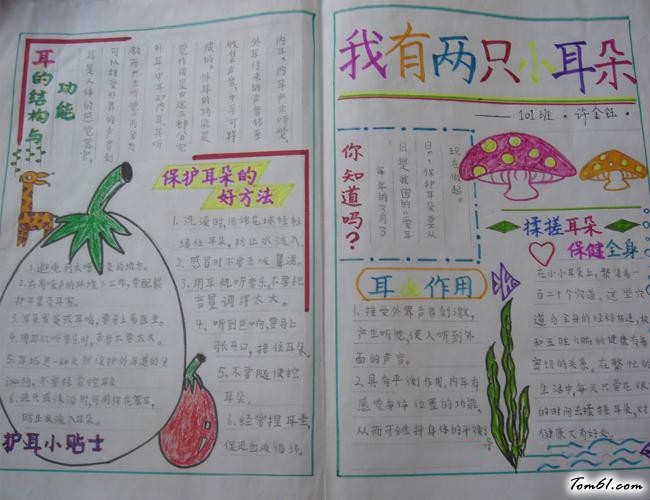 我有两只小耳朵
101班·许金钰·
你知道吗？
每年的3月3
日是我国的“爱耳
日”，保护耳朵要从
现在做起。
耳de作用
1.接受外界声音刺激，
产生听觉，使人听到外
面的声音。
2.具有平衡作用，内耳有
感觉身体位置的功能，
从而可维持身体的平衡。
揉搓耳朵
保健全身
在小小耳朵上，聚集着一
百二十个穴道。这些穴
道与全身的经络相连，
和五脏六腑的健康有着
密切的关系。在繁忙的
生活中，每天只要花很
的时间去揉搓耳朵，对
健康大有好处。
耳的结构与
功能
耳是人体的感觉器官，
可以接受外界的声音刺
激而产生听觉，耳分为
外耳、中耳和内耳，其听
觉作用是由这三部分完
成的。外耳的功能是
收集声音，中耳可将
外耳传来的声音传至
内耳，内耳产生听觉。
保护耳朵的
好方法
1.洗澡时，用棉花球轻轻
堵住耳朵，防止水流入。
2.感冒时不要丢吸鼻涕。
3.用耳机听音乐，不要把
音量调得太大。
4.听到巨响，要马上
张开口，捂住耳朵。
5.不要随便挖
耳朵。
6.经常捏耳垂，
促进血液循环。
1.避免去太嘈杂的地方。
2.在有噪声的环境下工作，要配戴
护耳塞或耳罩。
3.耳朵发炎或耳鸣，要马上看医生。
4.用耳机听音乐时，声音不要太大。
5.耳垢是一种天然保护外耳道的分
泌物，不要经常挖耳朵
6.洗头或沐浴时，可用棉花塞耳，
防止水流入耳朵。
护耳小贴士
Tom61.com